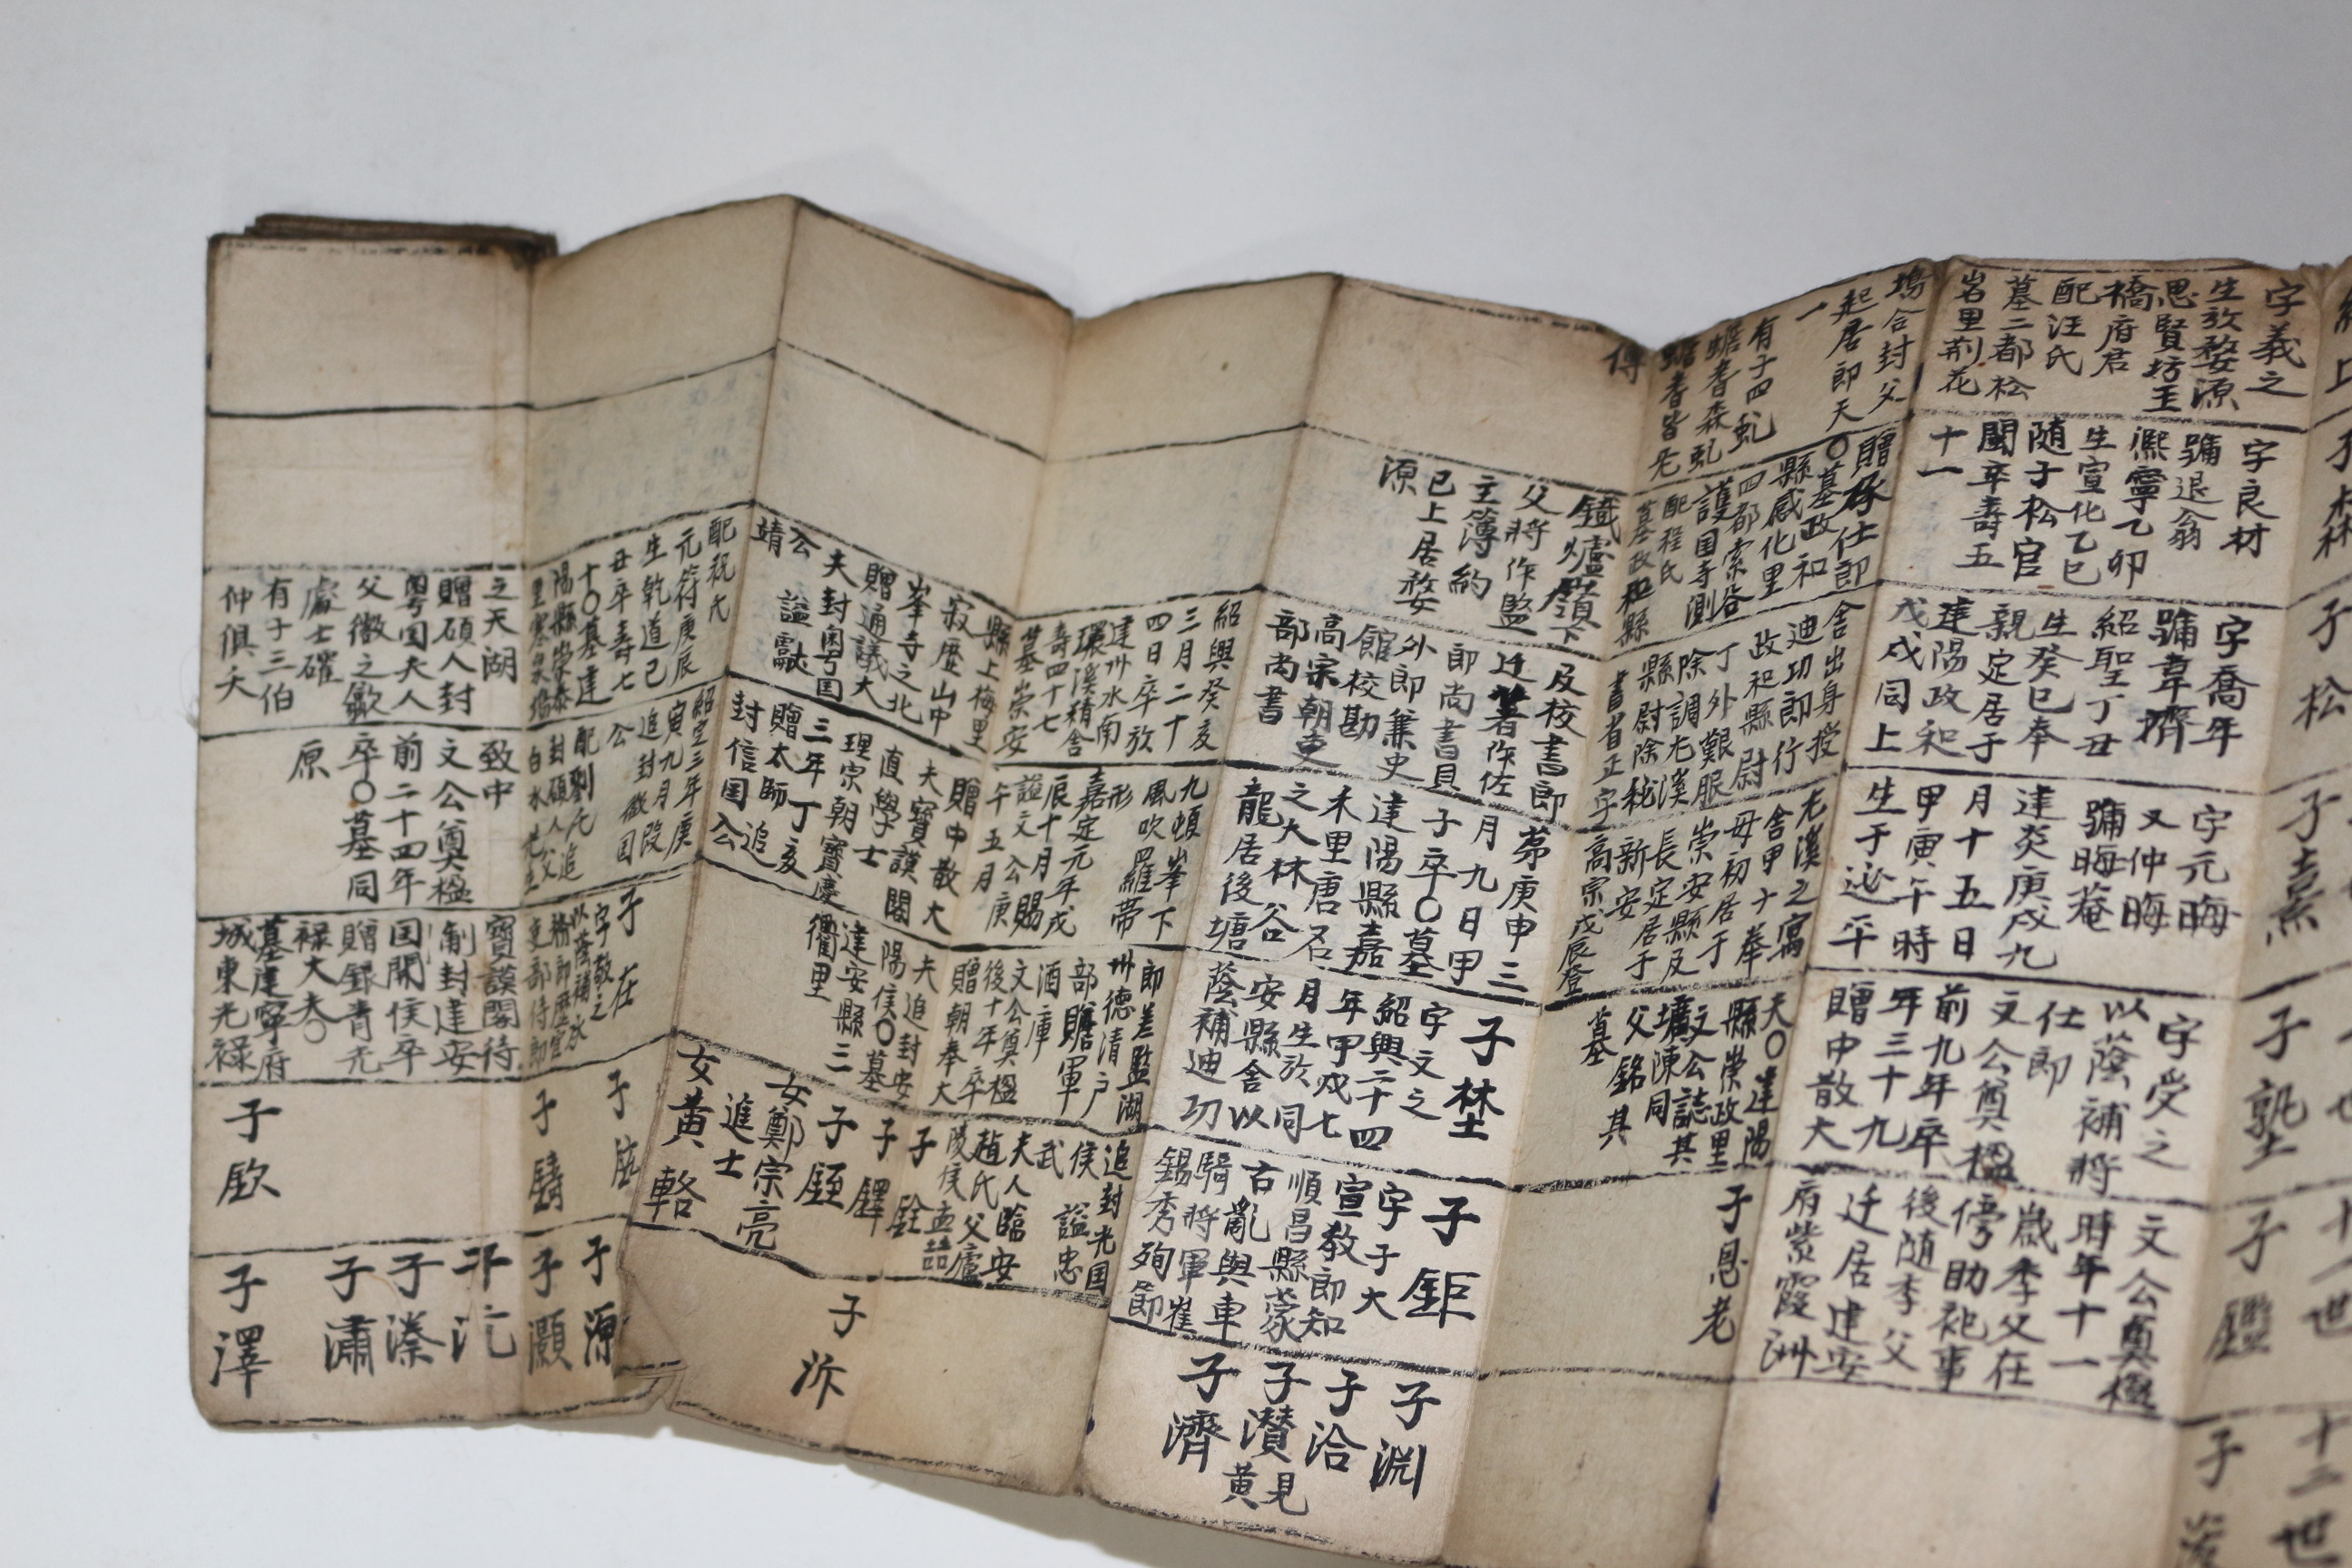 字義之
生於婺源
思賢坊主
橋府君
配汪氏
墓二都松
岩里荆花
塢合封父
起居郎天
一
有子四虬
蟾耆森虬
蟾耆皆无
傳
字良材
號退翁
熙寧乙卯
生宣化乙巳
随子松官
閩卒壽五
十一
贈承仕郎
〇墓政和
縣感化里
四都索谷
護国寺測
配程氏
墓政和縣
鐵爐嶺下
父將作監
主簿約
已上居婺
源
子松
字喬年
號韋齊
紹聖丁丑
生癸巳奉
親定居于
建陽政和
戊戌同上
舍出身授
迪功郎行
政和縣尉
丁外艱服
除調尤溪
縣尉除秘
書省正字
及校書郎
迁著作佐
郎尚書員
外郎兼史
館校勘
高宗朝吏
部尚書
紹興癸亥
三月二十
四日卒於
建州水南
環溪精舍
壽四十七
墓崇安
縣上梅里
寂歴山中
峯寺之北
贈通議大
夫封粤国
公 謚獻
靖
配祝氏
元符庚辰
生乾道己
丑卒壽七
十〇墓建
陽縣崇泰
里寒泉塢
之天湖
贈碩人封
粤国夫人
父徽之歙
處士確
有子三伯
仲俱夭
子熹
字元晦
又仲晦
號晦菴
建炎庚戌九
月十五日
甲寅午時
生于延平
尤溪之寓
舍甲十奉
母初居于
崇安縣及
長定居于
新安
高宗戊辰登
第庚申三
月九日甲
子卒〇墓
建陽縣嘉
禾里唐石
之大林谷
龍居後塘
九頓峯下
風吹羅帶
形
嘉定元年戊
辰十月賜
謚文公庚
午五月
贈中散大
夫寶謨閣
直學士
理宗朝寶慶
三年丁亥
贈太師追
封信国公
紹定三年庚
寅九月改
追封徽国
公
配劉氏追
封碩人父
白水先生
致中
文公奠楹
前二十四年
卒〇墓同
原
子塾
字受之
以蔭補將
仕郎
文公奠楹
前九年卒
年三十九
贈中散大
夫〇建陽
縣崇政里
墳文公誌其
壙陳同
父銘其
墓
子埜
字文之
紹興二十四
年甲戌七
月生於同
安縣舍以
蔭補迪功
郎差監湖
州德清户
部贍軍
酒庫
文公奠楹
後十年卒
贈朝奉大
夫追封安
陽侯〇墓
建安縣三
衢里
子在
字敬之
以蔭補承
務郎歴官
吏部侍郎
寶謨閣待
制封建安
国開侯卒
贈銀青光
禄大夫〇
墓建寧府
城東光禄
子鑑
文公奠楹
時年十一
歲季父在
傍助祀事
後随季父
迁居建安
府紫霞洲
子恩老
子鉅
字子大
宣教郎知
順昌縣蒙
古亂與車
騎將軍崔
錫秀殉節
追封光国
侯 謚忠
武
夫人臨安
趙氏父廬
陵侯孟喆
子銓
子鐸
子銋
女鄭宗亮
進士
女黄輅
子鉉
子鑄
子欽
十二世
子淵
子洽
子濽
見黄
子濟
子泝
子源
子灝
子沆
子溱
子潚
子澤